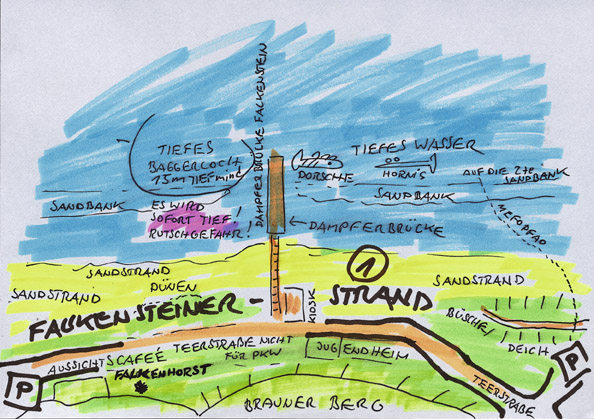 DAMPFERBRÜCKE FALKENSTEIN
TIEFES
BAGGERLOCH
15m TIEF mind.
TIEFES WASSER
DORSCHE
HORNIS
AUF DIE 2te
SANDBANK
SANDBANK
ES WIRD
SOFORT TIEF!
RUTSCHGEFAHR!
SANDBANK
← DAMPFERBRÜCKE
MEFOPFAD
SANDSTRAND
DÜNEN
SANDSTRAND
1
SANDSTRAND
FALKENSTEINER - STRAND
KIOSK
BÜSCHE/
DEICH
AUSSICHTSCAFEÉ
FALKENHORST
TEERSTRAßE NICHT
FÜR PKW
JUGENDHEIM
P
P
TEERSTRAßE
BRAUNER BERG